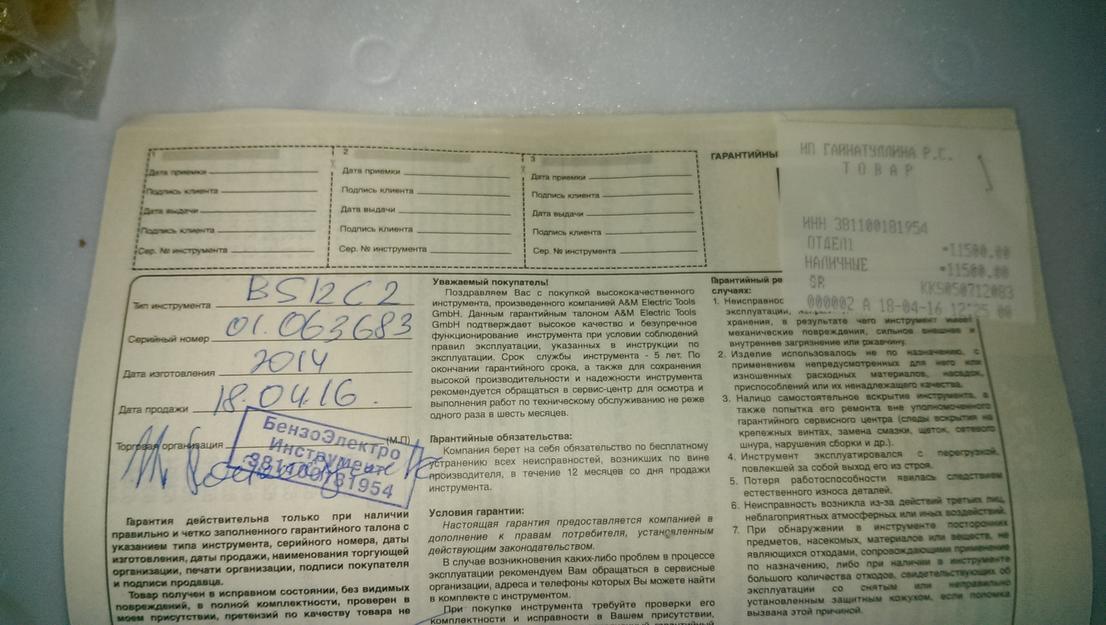 1
Дата приемки
Подпись клиента
Дата выдачи
Подпись клиента
Сер. № инструмента
2
Дата приемки
Подпись клиента
Дата выдачи
Подпись клиента
Сер. № инструмента
3
Дата приемки
Подпись клиента
Дата выдачи
Подпись клиента
Сер. № инструмента
ГАРАНТИЙНЫ
ИП ГАЙНАТУЛЛИНА Р.С.
ТОВАР
ИНН 381100181954
ОТДЕЛ1 =11500.00
НАЛИЧНЫЕ =11500.00
ЯR KKS050712083
000002 А 18-04-16
Тип инструмента BS12C2
Серийный номер 01.063683
Дата изготовления 2014
Дата продажи 18.04.16.
Торговая организация (М.П)
БензоЭлектро
Инструмент
381100181954
Гарантия действительна только при наличии
правильно и четко заполненного гарантийного талона с
указанием типа инструмента, серийного номера, даты
изготовления, даты продажи, наименования торгующей
организации, печати организации, подписи покупателя
и подписи продавца.
Товар получен в исправном состоянии, без видимых
повреждений, в полной комплектности, проверен в
моем присутствии, претензий по качеству товара не
Уважаемый покупатель!
Поздравляем Вас с покупкой высококачественного
инструмента, произведенного компанией A&M Electric Tools
GmbH. Данным гарантийным талоном A&M Electric Tools
GmbH подтверждает высокое качество и безупречное
функционирование инструмента при условии соблюдений
правил эксплуатации, указанных в инструкции по
эксплуатации. Срок службы инструмента - 5 лет. По
окончании гарантийного срока, а также для сохранения
высокой производительности и надежности инструмента
рекомендуется обращаться в сервис-центр для осмотра и
выполнения работ по техническому обслуживанию не реже
одного раза в шесть месяцев.
Гарантийные обязательства:
Компания берет на себя обязательство по бесплатному
устранению всех неисправностей, возникших по вине
производителя, в течение 12 месяцев со дня продажи
инструмента.
Условия гарантии:
Настоящая гарантия предоставляется компанией в
дополнение к правам потребителя, установленным
действующим законодательством.
В случае возникновения каких-либо проблем в процессе
эксплуатации рекомендуем Вам обращаться в сервисные
организации, адреса и телефоны которых Вы можете найти
в комплекте с инструментом.
При покупке инструмента требуйте проверки его
комплектности и исправности в Вашем присутствии,
Гарантийный ре
случаях:
1. Неисправнос
эксплуатации,
хранения, в результате чего инструмент имеет
механические повреждения, сильное внешнее и
внутреннее загрязнение или ржавчину.
2. Изделие использовалось не по назначению, с
применением непредусмотренных для него или
изношенных расходных материалов, насадок,
приспособлений или их ненадлежащего качества.
3. Налицо самостоятельное вскрытие инструмента, а
также попытка его ремонта вне уполномоченного
гарантийного сервисного центра (следы вскрытия на
крепежных винтах, замена смазки, щеток, сетевого
шнура, нарушения сборки и др.).
4. Инструмент эксплуатировался с перегрузкой,
повлекшей за собой выход его из строя.
5. Потеря работоспособности явилась следствием
естественного износа деталей.
6. Неисправность возникла из-за действий третьих лиц,
неблагоприятных атмосферных или иных воздействий.
7. При обнаружении в инструменте посторонних
предметов, насекомых, материалов или веществ, не
являющихся отходами, сопровождающими применение
по назначению, либо при наличии в инструменте
большого количества отходов, свидетельствующих об
эксплуатации со снятым или неправильно
установленным защитным кожухом, если поломка
вызвана этой причиной.